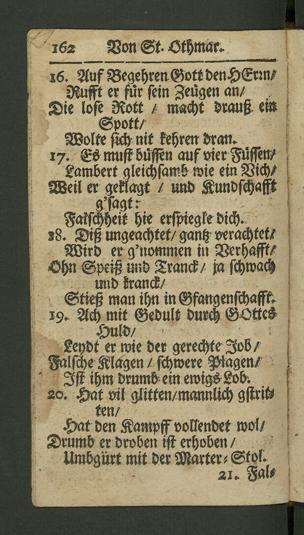 162 Von St. Othmar.
16. Auf Begehren Gott den HErrn/
Rufft er für sein Zeügen an/
Die lose Rott / macht drauß ein
Spott/
Wolte sich nit kehren dran.
17. Es must büssen auf vier Füssen/
Lambert gleichsamb wie ein Vich/
Weil er geklagt / und Kundschafft
g'sagt:
Falschheit hie erspiegle dich.
18. Diß ungeachtet/ gantz verachtet/
Wird er g'nommen in Verhafft/
Ohn Speiß und Tranck/ ja schwach
und kranck/
Stieß man ihn in Gfangenschafft.
19. Ach mit Gedult durch GOttes
Huld/
Leydt er wie der gerechte Job/
Falsche Klagen / schwere Plagen/
Ist ihm drumb ein ewigs Lob.
20. Hat vil glitten/mannlich gstrit-
ten/
Hat den Kampff vollendet wol/
Drumb er droben ist erhoben/
Umbgürt mit der Marter-Styl.
21. Fal-